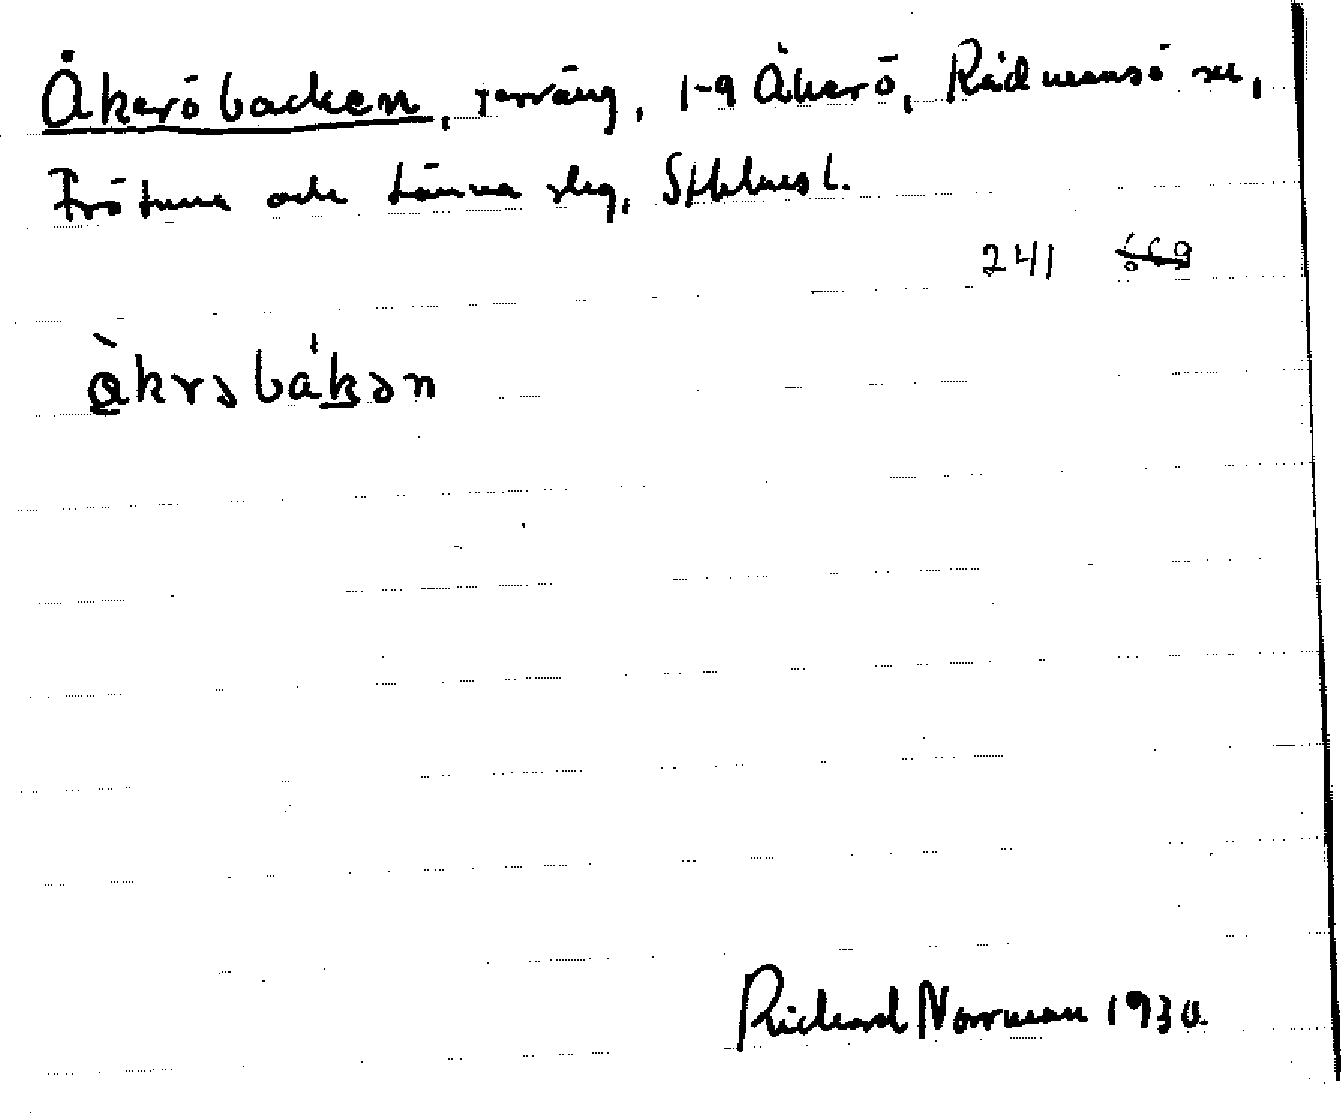 Åkeröbacken, terräng, 1-9 Åkerö, Rådmansö sn,
Frötuna och Länna slg, Sthlms l.
241 669
å̀krəbák̠ən
Richard Norrman 1930.